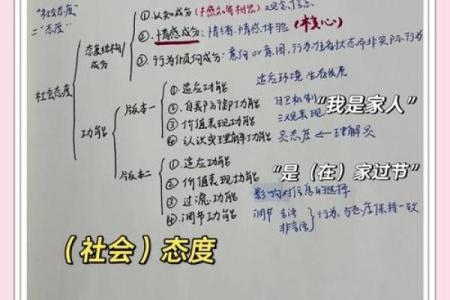 "社会态度"
="态度"
社会态度
态度结构/成分
①.认知成分
②.情感成分：情绪、情感体验（核心）
③.行为倾向成分：意向 or 意图，行为准备状态而非实际行为
功能
版本一
①.适应功能 适应环境 生存发展
②.自我防御功能 自卫机制
③价值表现功能 三观表现
④认识或理解功能
“我是家人”
版本二
①.适应功能
②.价值表现功能
③过滤功能 影响对信息的选择
④.调节功能 调节 言语 非言语 行为，与态度保持一致
“是（在）家过节”
（社会）态度